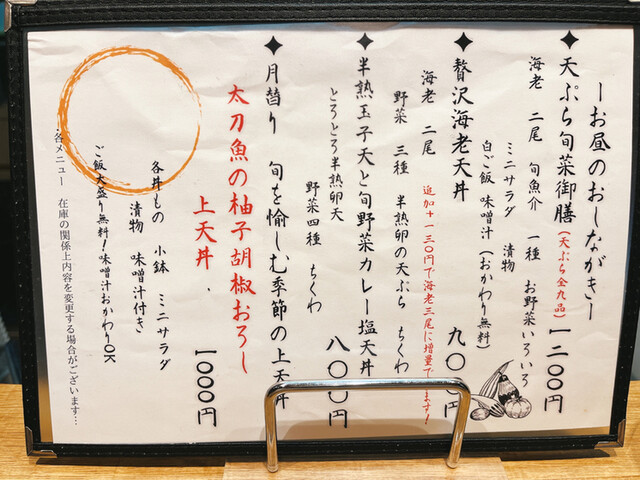 ーお昼のおしながきー
✦天ぷら旬菜御膳(天ぷら全九品) 一二〇〇円
海老 二尾 旬魚介 一種 お野菜いろいろ
ミニサラダ 漬物
白ご飯 味噌汁(おかわり無料)
✦贅沢海老天丼 九〇〇円
海老 二尾 追加+一三〇円で海老三尾に増量で
ます!
野菜 三種 半熟卵の天ぷら ちくわ
✦半熟玉子天と旬野菜カレー塩天丼 八〇〇円
とろとろ半熟卵天
野菜四種 ちくわ
✦月替り 旬を愉しむ季節の上天丼
太刀魚の柚子胡椒おろし
上天丼. 一〇〇〇円
各丼もの 小鉢 ミニサラダ
漬物 味噌汁付き
ご飯大盛り無料!味噌汁おかわりOK
各メニュー 在庫の関係上内容を変更する場合がございます…